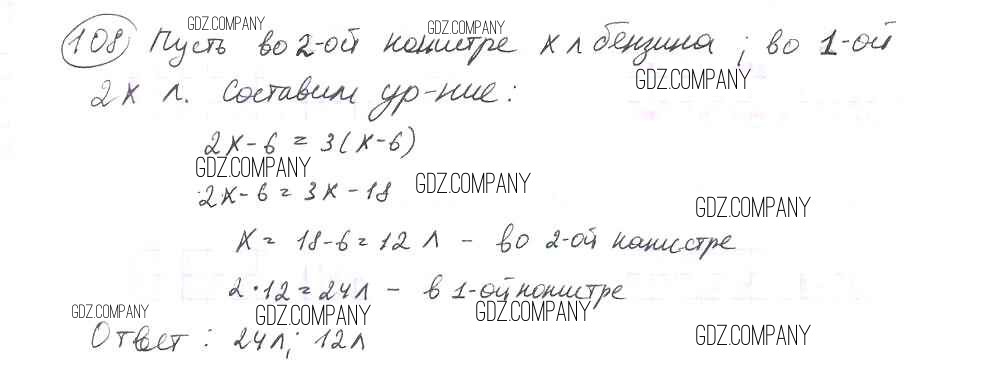 GDZ.COMPANY GDZ.COMPANY
108) Пусть во 2-ой канистре х л бензина; во 1-ой
GDZ.COMPANY
2х л. Составим ур-ние:
2х-6 = 3(х-6)
GDZ.COMPANY GDZ.COMPANY
2х-6 = 3х-18
GDZ.COMPANY
х = 18-6=12 л - во 2-ой канистре
2·12=24л - в 1-ой канистре
GDZ.COMPANY GDZ.COMPANY GDZ.COMPANY
Ответ: 24л; 12л
GDZ.COMPANY